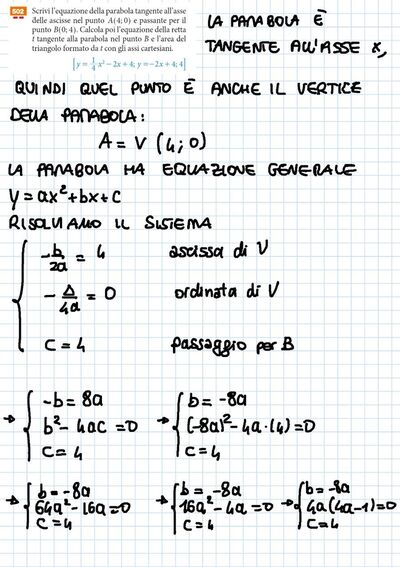 502 Scrivi l'equazione della parabola tangente all'asse
delle ascisse nel punto A(4; 0) e passante per il
punto B(0; 4). Calcola poi l'equazione della retta
t tangente alla parabola nel punto B e l'area del
triangolo formato da t con gli assi cartesiani.
[y = 1/4 x² − 2x + 4; y = −2x + 4; 4]
LA PARABOLA È
TANGENTE ALL'ASSE X,
QUINDI QUEL PUNTO È ANCHE IL VERTICE
DELLA PARABOLA:
A = V (4; 0)
LA PARABOLA HA EQUAZIONE GENERALE
y = ax² + bx + c
RISOLVIAMO IL SISTEMA
-b/2a = 4 ascissa di V
-Δ/4a = 0 ordinata di V
c = 4 passaggio per B
→ { -b = 8a → { b = -8a
b² - 4ac = 0 (-8a)² - 4a·(4) = 0
c = 4 c = 4
→ { b = -8a → { b = -8a → { b = -8a
64a² - 16a = 0 16a² - 4a = 0 4a(4a-1) = 0
c = 4 c = 4 c = 4